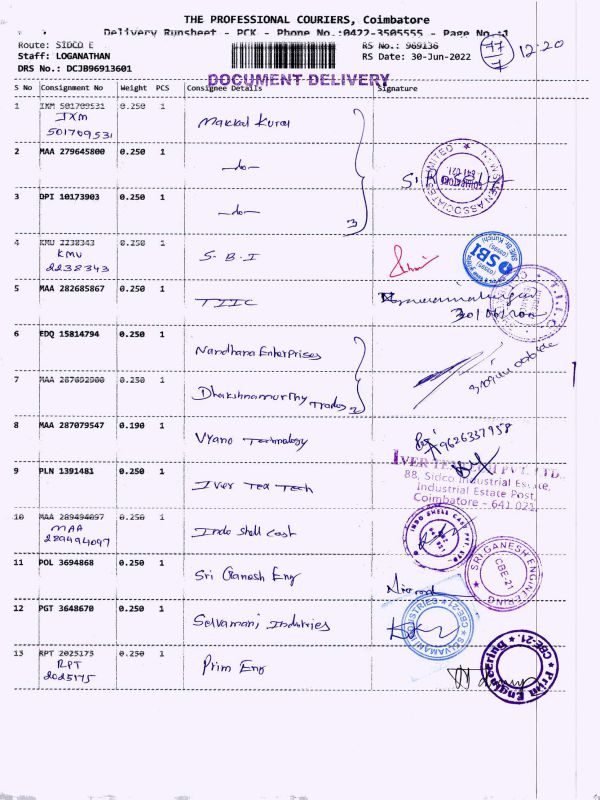 THE PROFESSIONAL COURIERS, Coimbatore
Delivery Runsheet - PCK - Phone No.:0422-3505555 - Page No.:1
Route: SIDCO E RS No.: 969136 77/7 12:20
Staff: LOGANATHAN RS Date: 30-Jun-2022
DRS No.: DCJB96913601
DOCUMENT DELIVERY
S No Consignment No Weight PCS Consignee Details Signature
1 IXM 501709531 0.250 1 Makkal Kural
IXM
501709531
2 MAA 279645800 0.250 1 -do-
3 DPI 10173903 0.250 1 -do-
3
4 KMU 2238343 0.250 1 S.B.I
KMU
2238343
SBI
5 MAA 282685867 0.250 1 TIIC
6 EDQ 15814794 0.250 1 Nandhana Enterprises
7 MAA 287692900 0.250 1 Dhakshnamurthy Trados 2
8 MAA 287079547 0.190 1 Vyano Technology
9626337958
9 PLN 1391481 0.250 1 Iver Tea Tech
88, Sidco Industrial Estate,
Industrial Estate Post,
Coimbatore - 641 021.
10 MAA 289494097 0.250 1 Indo Shell Cast
MAA
289494097
INDO SHELL CAST PVT. LTD.
11 POL 3694868 0.250 1 Sri Ganesh Eng
SRI GANESH ENGINEERING
CBE-21
12 PGT 3648670 0.250 1 Selvamani Indutries
SELVAMANI INDUSTRIES
CBE-21
13 RPT 2025175 0.250 1 Prim Eng
RPT
2025175
Prim Engineering
CBE-21.